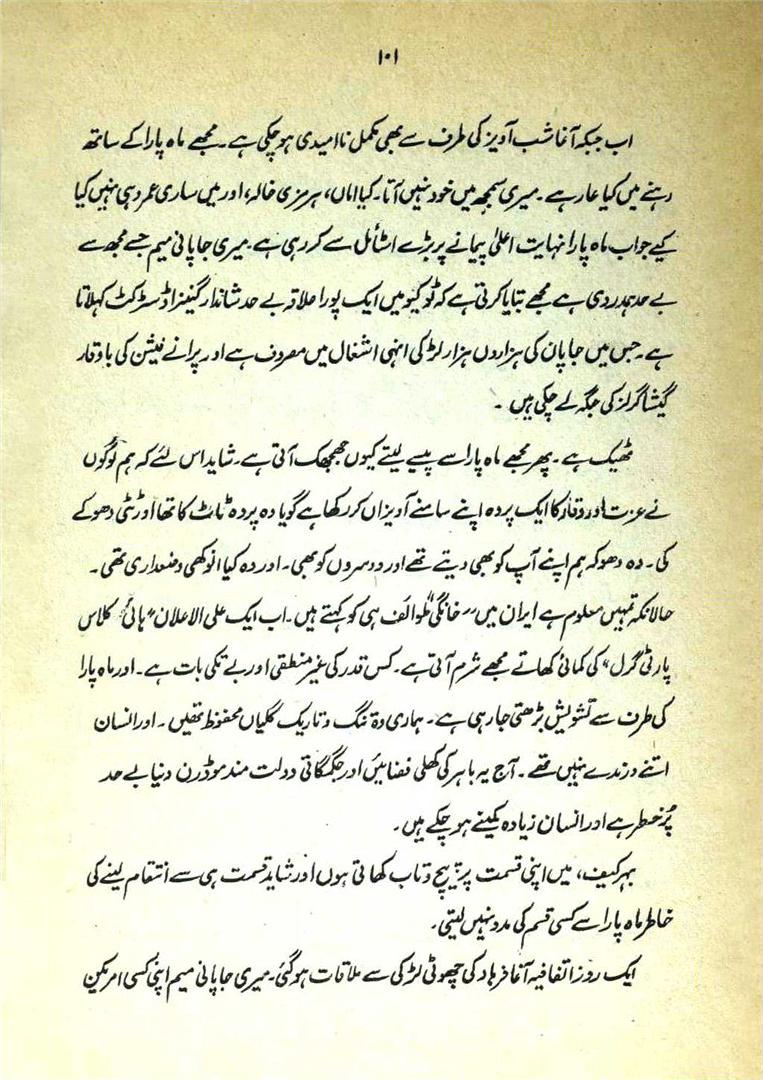 ۱۰۱
اب جبکہ آغا شب آویز کی طرف سے بھی مکمل نا امیدی ہو چکی ہے۔ مجھے ماہ پارا کے ساتھ
رہنے میں کیا عار ہے۔ میری سمجھ میں خود نہیں آتا۔ کیا اماں، ہرمزی خالہ، اور میں ساری عمر وہی نہیں کیا
کیے جو اب ماہ پارا نہایت اعلیٰ پیمانے پر بڑے اسٹائل سے کر رہی ہے۔ میری جاپانی میم جسے مجھ سے
بے حد ہمدردی ہے مجھے بتایا کرتی ہے کہ ٹوکیو میں ایک پورا علاقہ بے حد شاندار گینزا ڈسٹرکٹ کہلاتا
ہے۔ جس میں جاپان کی ہزاروں ہزار لڑکی انہی اشغال میں مصروف ہے اور پرانے فیشن کی باوقار
گیشا گرلز کی جگہ لے چکی ہیں ۔
ٹھیک ہے۔ پھر مجھے ماہ پارا سے پیسے لیتے کیوں جھجھک آتی ہے۔ شاید اس لئے کہ ہم لوگوں
نے عزت اور وقار کا ایک پردہ اپنے سامنے آویزاں کر رکھا ہے گویا وہ پردہ ٹاٹ کا تھا اور ٹٹی دھوکے
کی۔ وہ دھوکہ ہم اپنے آپ کو بھی دیتے تھے اور دوسروں کو بھی۔ اور وہ کیا انوکھی وضعداری تھی۔
حالانکہ تمہیں معلوم ہے ایران میں ”خانگی“ طوائف ہی کو کہتے ہیں۔ اب ایک علی الاعلان ”ہائی کلاس
پارٹی گرل“ کی کمائی کھاتے مجھے شرم آتی ہے۔ کس قدر کی غیر منطقی اور بے تکی بات ہے۔ اور ماہ پارا
کی طرف سے تشویش بڑھتی جا رہی ہے۔ ہماری وہ تنگ و تاریک گلیاں محفوظ تھیں ۔ اور انسان
اتنے درندے نہیں تھے۔ آج یہ باہر کی کھلی فضائیں اور جگمگاتی دولت مند موڈرن دنیا بے حد
پُر خطر ہے اور انسان زیادہ کمینے ہو چکے ہیں۔
بہرکیف، میں اپنی قسمت پر پیچ و تاب کھاتی ہوں اور شاید قسمت ہی سے انتقام لینے کی
خاطر ماہ پارا سے کسی قسم کی مدد نہیں لیتی۔
ایک روز اتفاقیہ آغا فرہاد کی چھوٹی لڑکی سے ملاقات ہو گئی۔ میری جاپانی میم اپنی کسی امریکن